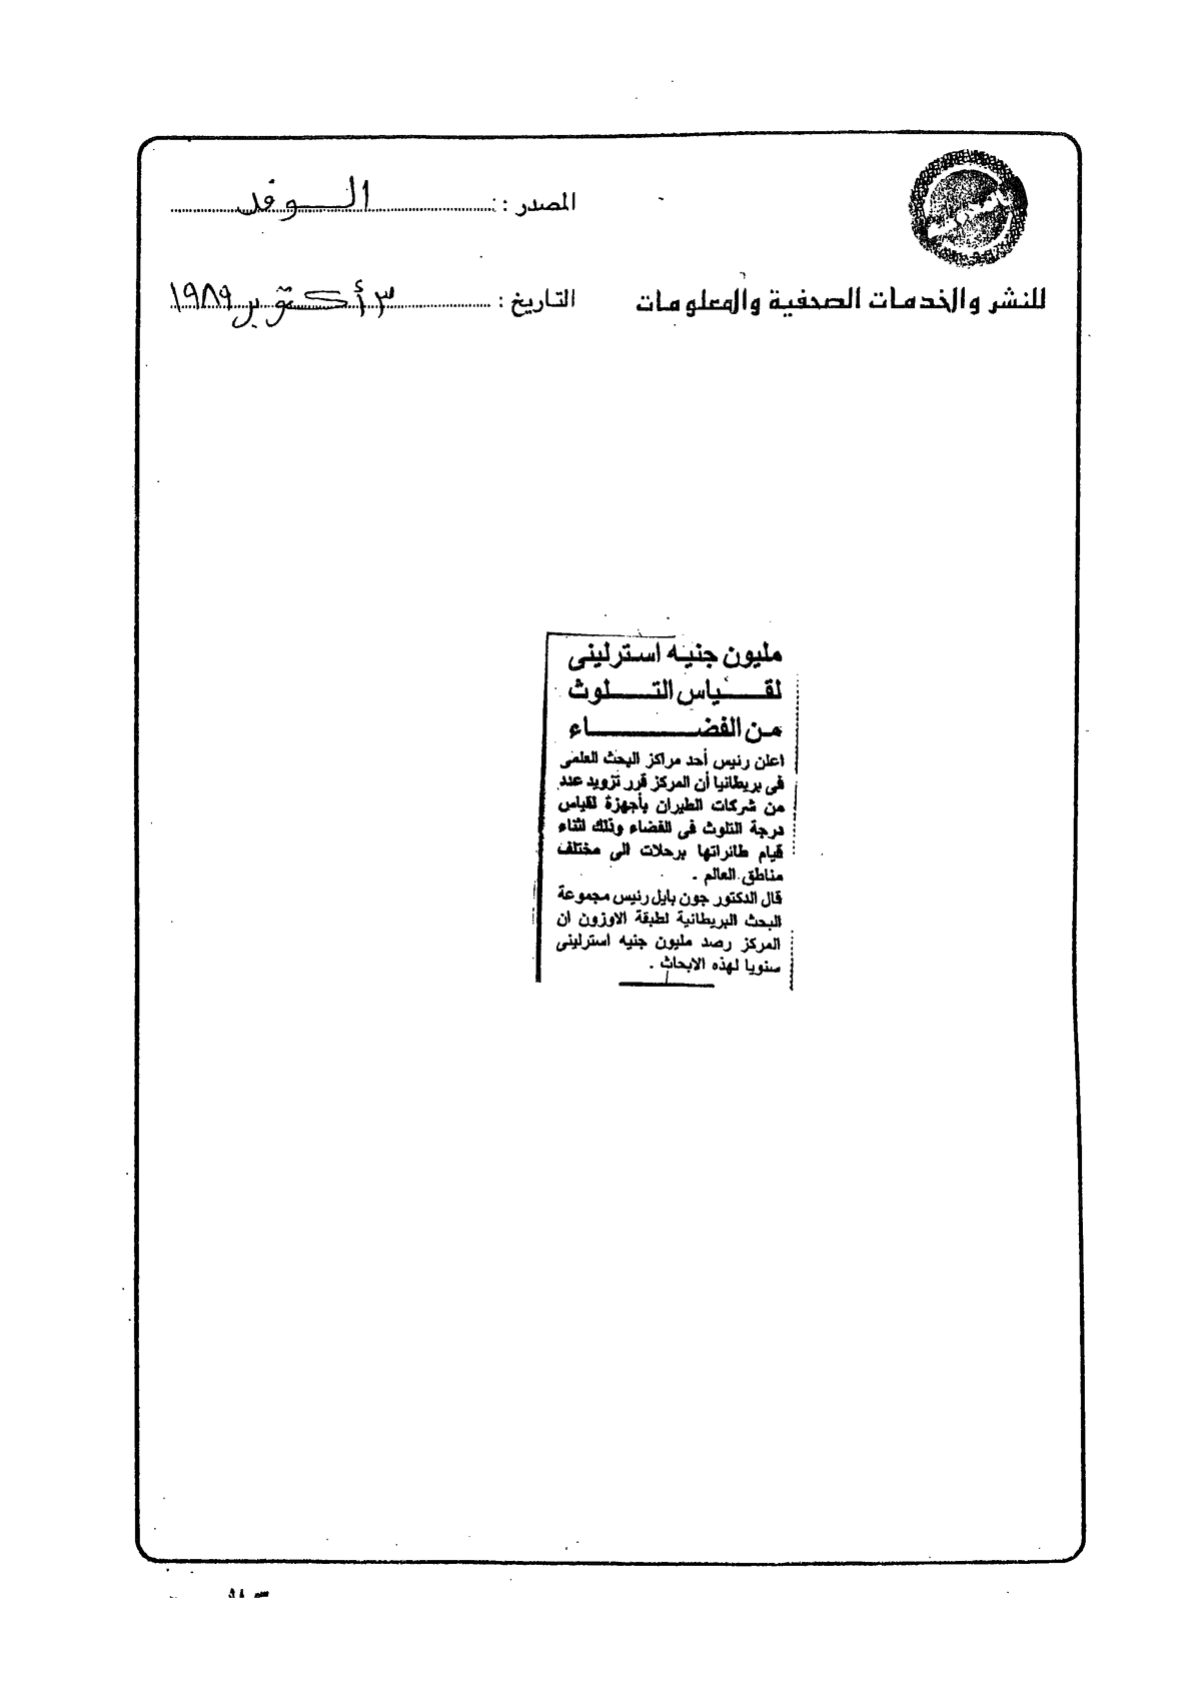 المصدر : الوفد
للنشر والخدمات الصحفية والمعلومات
التاريخ : ٣ أكتوبر ١٩٨٩
مليون جنيه استرلينى
لقياس التلوث
من الفضاء
اعلن رئيس أحد مراكز البحث العلمى
فى بريطانيا أن المركز قرر تزويد عدد
من شركات الطيران بأجهزة لقياس
درجة التلوث فى الفضاء وذلك اثناء
قيام طائراتها برحلات الى مختلف
مناطق العالم .
قال الدكتور جون بايل رئيس مجموعة
البحث البريطانية لطبقة الاوزون ان
المركز رصد مليون جنيه استرلينى
سنويا لهذه الابحاث .